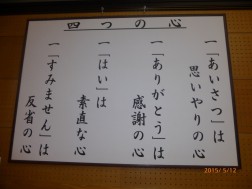 四つの心
一「あいさつ」は
思いやりの心
一「ありがとう」は
感謝の心
一「はい」は
素直な心
一「すみません」は
反省の心
2015/5/12